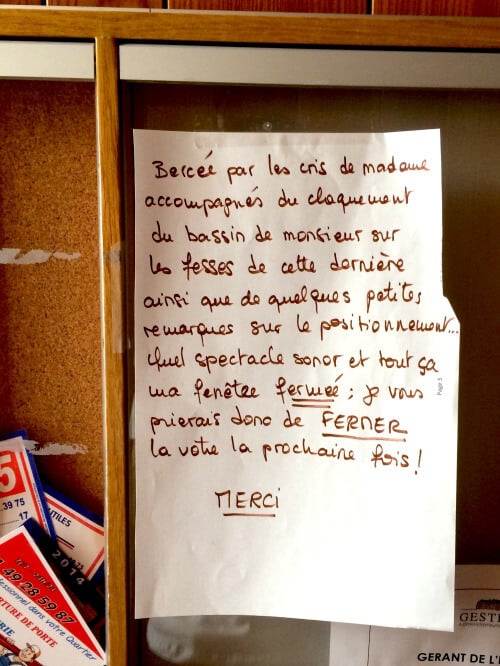 Bercée par les cris de madame
accompagnés du claquement
du bassin de monsieur sur
les fesses de cette dernière
ainsi que de quelques petites
remarques sur le positionnement...
Quel spectacle sonor et tout ça
ma fenêtre fermée ; je vous
prierais donc de FERMER
la votre la prochaine fois !
MERCI
Page 3
5
.39 75
..17
UTILES
2014
49 28 59 87
ofessionnel dans votre Quartier
RTURE DE PORTE
RIE
GEST
GERANT DE L'I